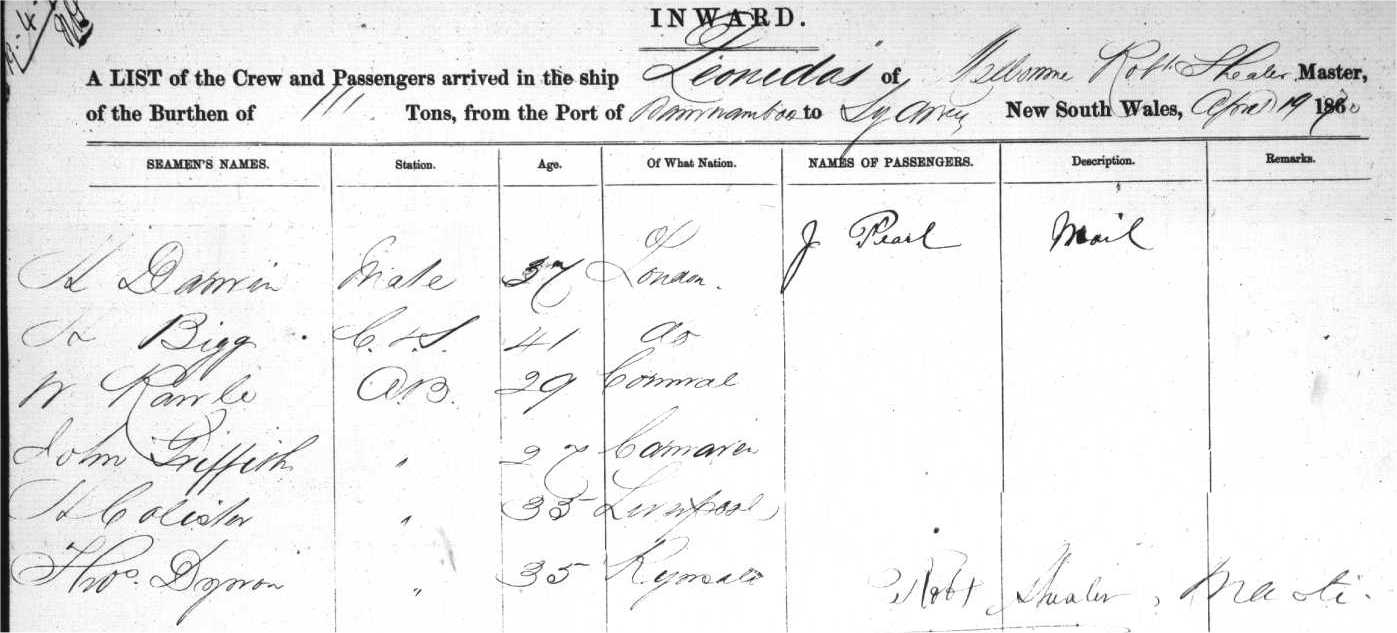 INWARD.
A LIST of the Crew and Passengers arrived in the ship Leonidas of Melbourne Robt. Shealer Master,
of the Burthen of 111 Tons, from the Port of to Sydney New South Wales, April 19 1870
SEAMEN'S NAMES. Station. Age. Of What Nation. NAMES OF PASSENGERS. Description. Remarks.
of J Pearl Mail
H Darwin Mate 37 London.
H Bigg C. & S. 41 do
W Rawle A.B. 29 Cornwal
John Griffith " 27
H Colister " 35 Liverpool
Thos. Dyson " 35
Robt Shealer,